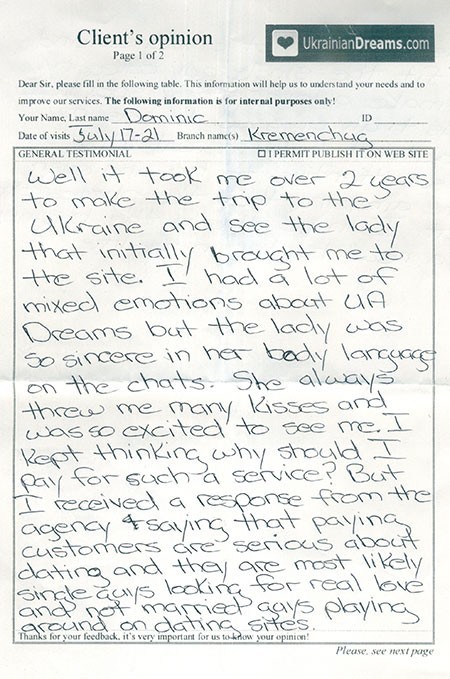 Client's opinion
Page 1 of 2
UkrainianDreams.com
Dear Sir, please fill in the following table. This information will help us to understand your needs and to
improve our services. The following information is for internal purposes only!
Your Name, Last name Dominic ID
Date of visits July 17-21 Branch name(s) Kremenchug
GENERAL TESTIMONIAL ☐ I PERMIT PUBLISH IT ON WEB SITE
Well it took me over 2 years
to make the trip to the
Ukraine and see the lady
that initially brought me to
the site. I had a lot of
mixed emotions about UA
Dreams but the lady was
so sincere in her body language
on the chats. She always
threw me many kisses and
was so excited to see me. I
kept thinking why should I
pay for such a service? But
I received a response from the
agency & saying that paying
customers are serious about
dating and they are most likely
single guys looking for real love
and not married guys playing
around on dating sites.
Thanks for your feedback, it's very important for us to know your opinion!
Please, see next page